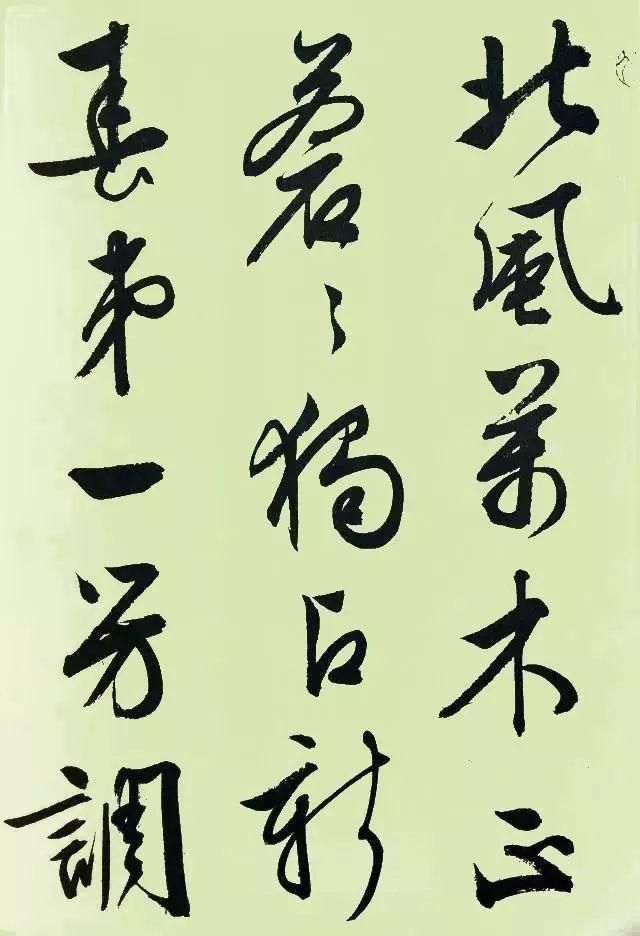 北風萬木正
蒼々獨占新
春第一芳調